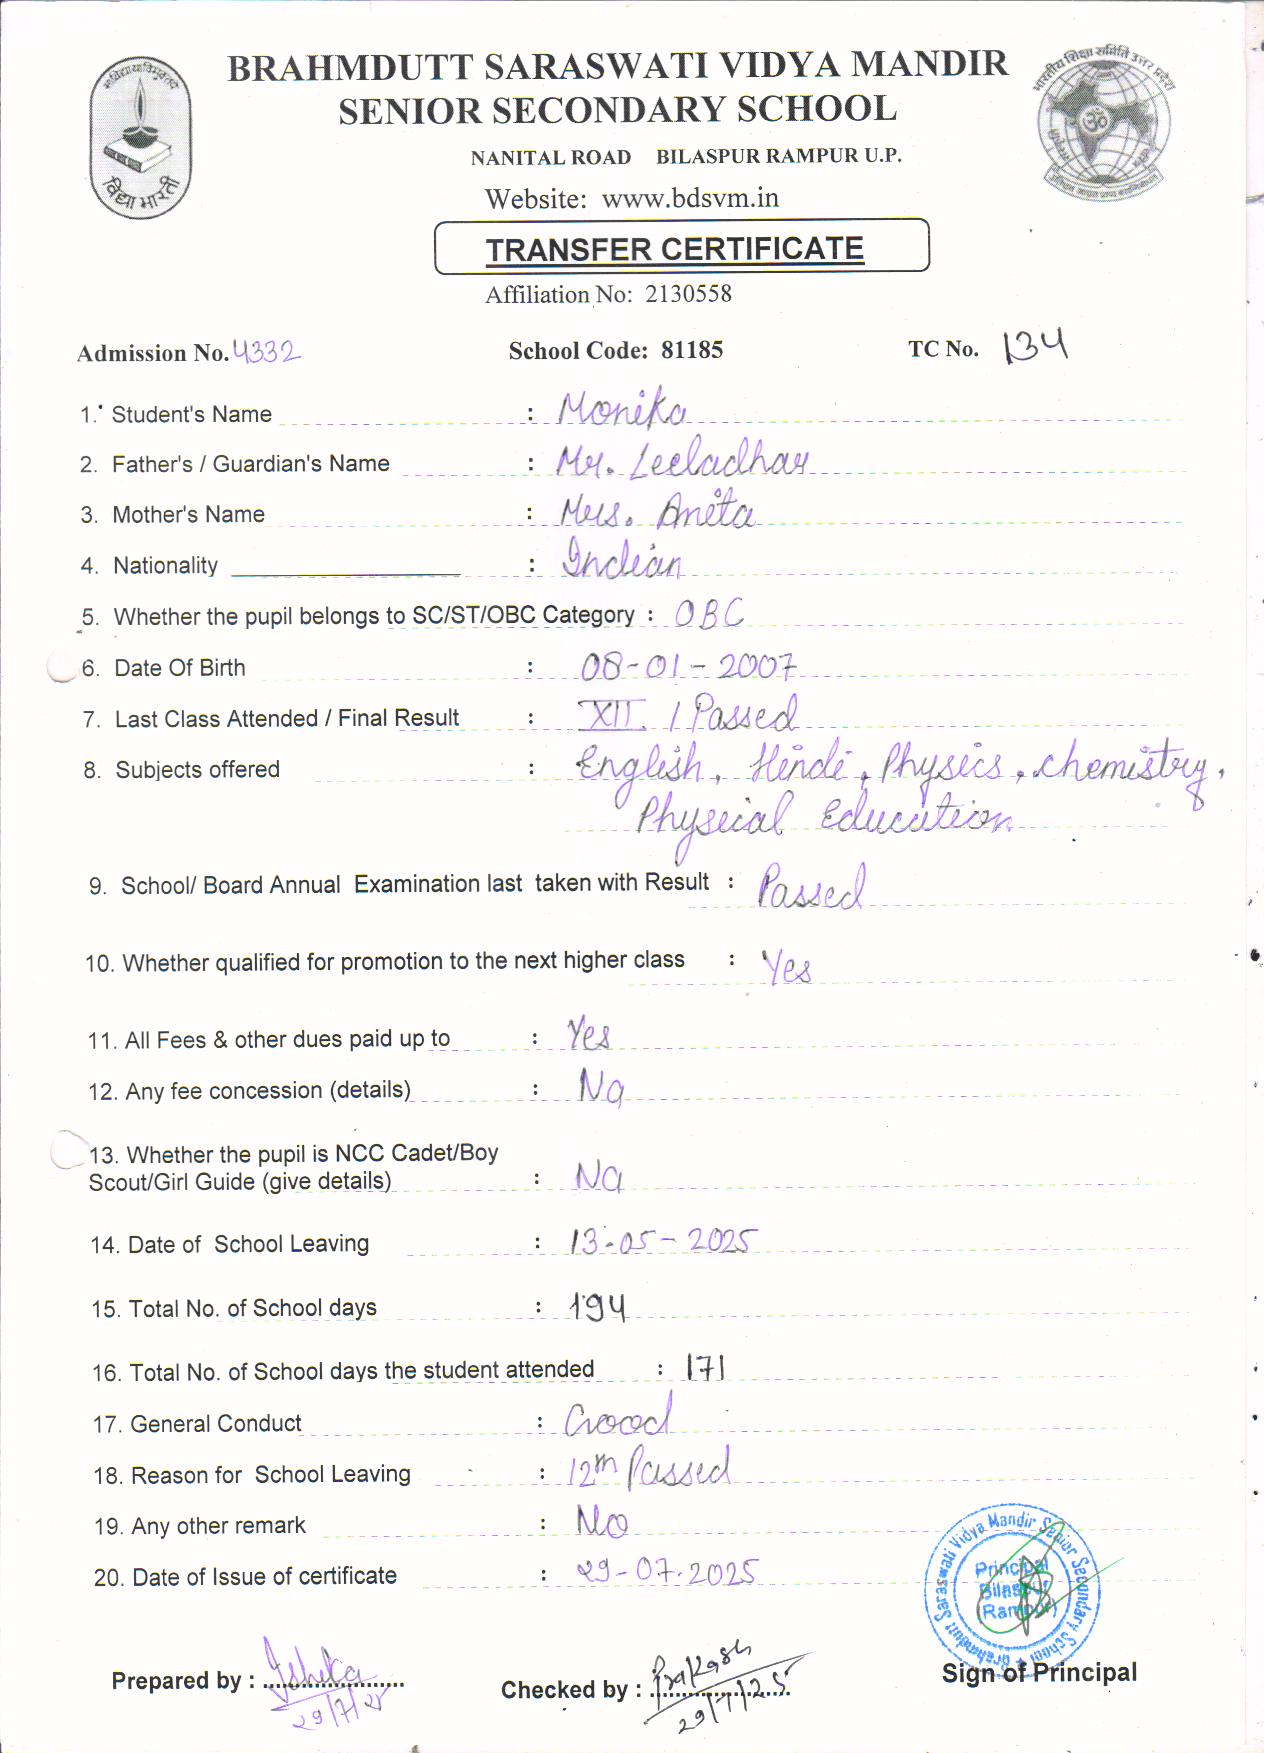 BRAHMDUTT SARASWATI VIDYA MANDIR
SENIOR SECONDARY SCHOOL
NANITAL ROAD BILASPUR RAMPUR U.P.
Website: www.bdsvm.in
विद्या भारती
भारतीय शिक्षा समिति उत्तर प्रदेश
TRANSFER CERTIFICATE
Affiliation No: 2130558
Admission No. 4332 School Code: 81185 TC No. 134
1. Student's Name : Monika
2. Father's / Guardian's Name : Mr. Leeladhar
3. Mother's Name : Mrs. Anita
4. Nationality : Indian
5. Whether the pupil belongs to SC/ST/OBC Category : OBC
6. Date Of Birth : 08-01-2007
7. Last Class Attended / Final Result : XII / Passed
8. Subjects offered : English, Hindi, Physics, chemistry,
Physical Education
9. School/ Board Annual Examination last taken with Result : Passed
10. Whether qualified for promotion to the next higher class : Yes
11. All Fees & other dues paid up to : Yes
12. Any fee concession (details) : No
13. Whether the pupil is NCC Cadet/Boy
Scout/Girl Guide (give details) : No
14. Date of School Leaving : 13-05-2025
15. Total No. of School days : 194
16. Total No. of School days the student attended : 171
17. General Conduct : Good
18. Reason for School Leaving : 12th Passed
19. Any other remark : No
20. Date of Issue of certificate : 29-07-2025
Brahmdutt Saraswati Vidya Mandir Senior Secondary School
Principal
Bilaspur
(Rampur)
Prepared by : Ishika
29/7/25
Checked by : Prakash
29/7/25
Sign of Principal